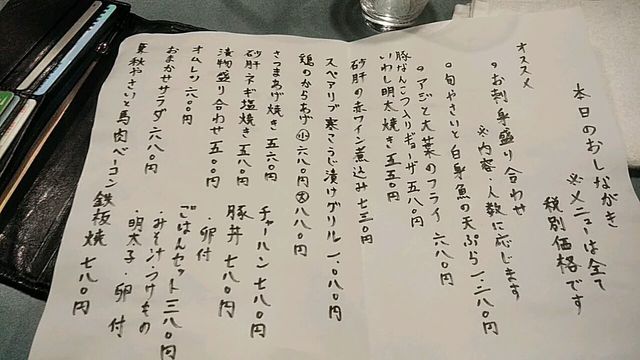 本日のおしながき
※メニューは全て
税別価格です
オススメ
お刺身盛り合わせ
※内容・人数に応じます
旬やさいと白身魚の天ぷら 一、二八〇円
アジと大葉のフライ 六八〇円
豚なんこつ入りギョーザ 五八〇円
いわし明太焼き 五五〇円
砂肝の赤ワイン煮込み 七三〇円
スペアリブ 塩こうじ漬けグリル 一、〇八〇円
鶏のからあげ 小 六八〇円 大 八八〇円
さつまあげ焼き 五六〇円
砂肝ネギ塩焼き 五八〇円
漬物盛り合わせ 五〇〇円
オムレツ 六〇〇円
おまかせサラダ 六八〇円
夏秋やさいと馬肉ベーコン鉄板焼 七八〇円
チャーハン 七八〇円
豚丼 七八〇円
・卵付
ごはんセット 三八〇円
・みそ汁・つけもの
・明太子・卵 付